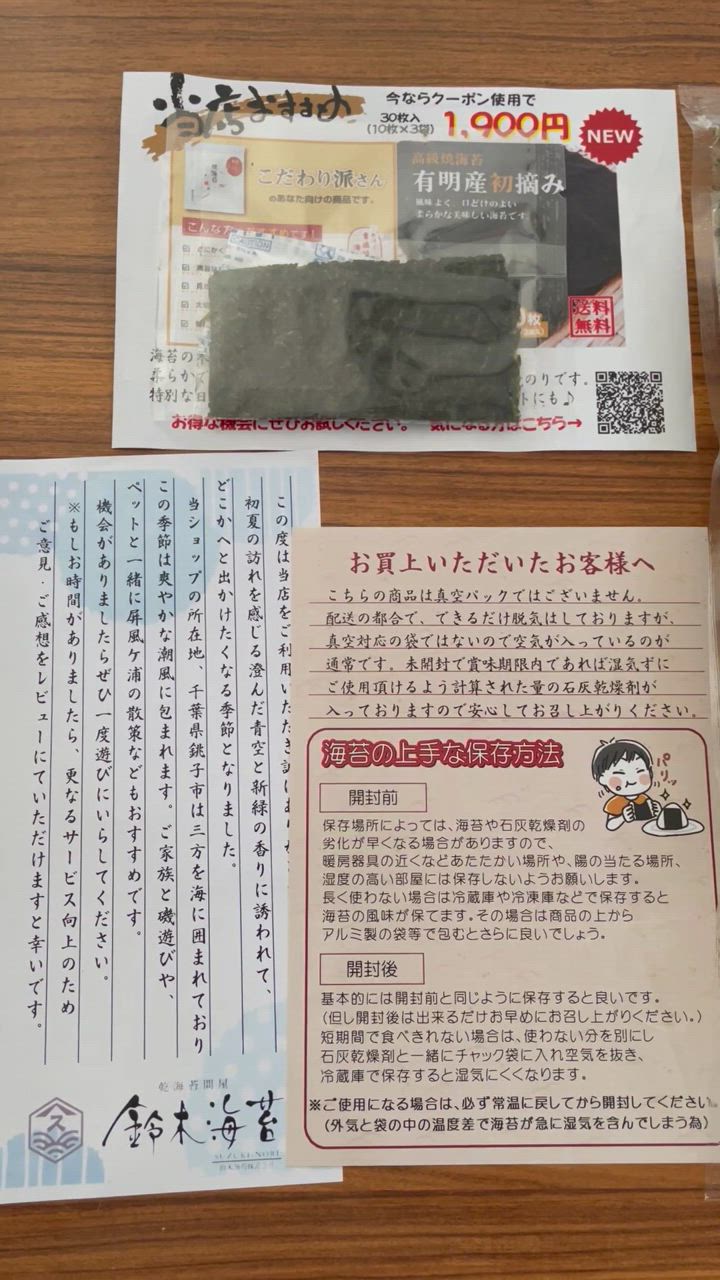 当店おすすめ
今ならクーポン使用で
30枚入
(10枚×3袋)
1,900円
NEW
こだわり派さん
のあなた向けの商品です。
高級焼海苔
有明産初摘み
風味よく、口どけのよい
柔らかな美味しい海苔です
送料
無料
海苔の
のりです。
柔らかで
特別な日
トにも♪
お得な機会にぜひお試しください。 気になる方はこちら→
この度は当店をご利用いただき誠にあり
初夏の訪れを感じる澄んだ青空と新緑の香りに誘われて、
どこかへと出かけたくなる季節となりました。
当ショップの所在地、千葉県銚子市は三方を海に囲まれており
この季節は爽やかな潮風に包まれます。ご家族と磯遊びや、
ペットと一緒に屏風ケ浦の散策などもおすすめです。
機会がありましたらぜひ一度遊びにいらしてください。
※もしお時間がありましたら、更なるサービス向上のため
ご意見・ご感想をレビューにていただけますと幸いです。
乾海苔問屋
鈴木海苔
SUZUKI NORI
鈴木海苔株式会社
お買上いただいたお客様へ
こちらの商品は真空パックではございません。
配送の都合で、できるだけ脱気はしておりますが、
真空対応の袋ではないので空気が入っているのが
通常です。未開封で賞味期限内であれば湿気ずに
ご使用頂けるよう計算された量の石灰乾燥剤が
入っておりますので安心してお召し上がりください。
海苔の上手な保存方法
パリッ
開封前
保存場所によっては、海苔や石灰乾燥剤の
劣化が早くなる場合がありますので、
暖房器具の近くなどあたたかい場所や、陽の当たる場所、
湿度の高い部屋には保存しないようお願いします。
長く使わない場合は冷蔵庫や冷凍庫などで保存すると
海苔の風味が保てます。その場合は商品の上から
アルミ製の袋等で包むとさらに良いでしょう。
開封後
基本的には開封前と同じように保存すると良いです。
(但し開封後は出来るだけお早めにお召し上がりください。)
短期間で食べきれない場合は、使わない分を別にし
石灰乾燥剤と一緒にチャック袋に入れ空気を抜き、
冷蔵庫で保存すると湿気にくくなります。
※ご使用になる場合は、必ず常温に戻してから開封してください
(外気と袋の中の温度差で海苔が急に湿気を含んでしまう為)